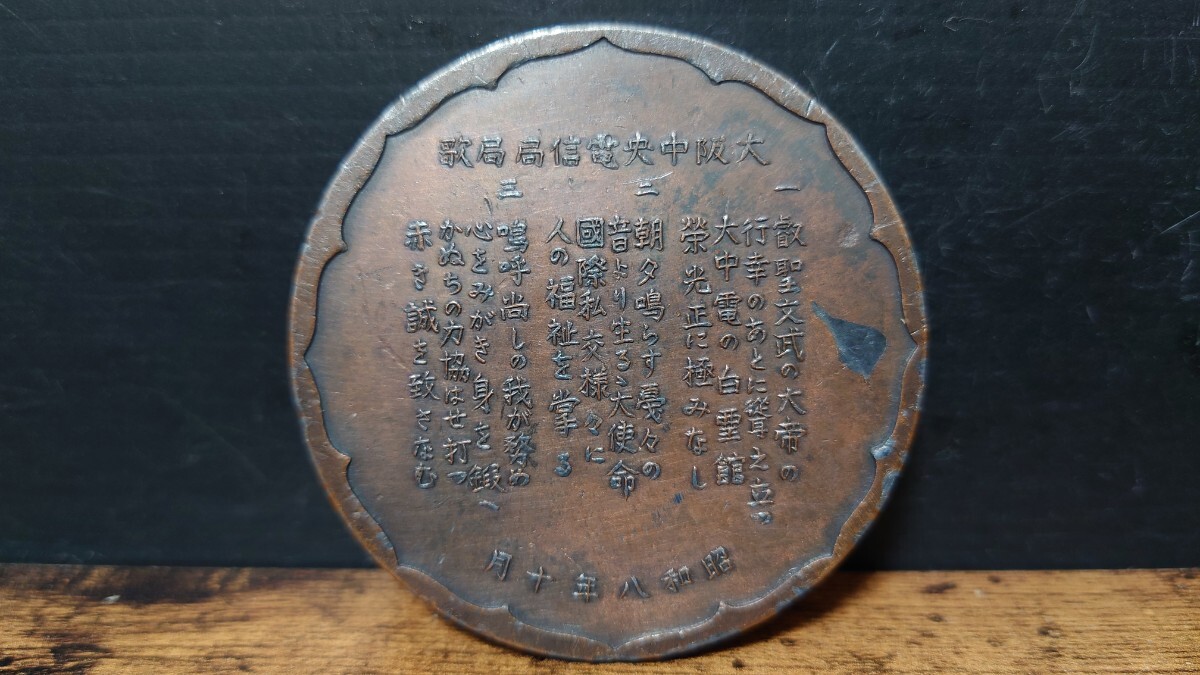 大阪中央電信局局歌
一
叡聖文武の大帝の
行幸のあとに聳え立つ
大中電の白堊館
榮光正に極みなし
二
朝夕鳴らす戞々の
音より生るゝ大使命
國際私交様々に
人の福祉を掌る
三
嗚呼尚しの我が務め
心をみがき身を鍛へ
かぬちの力協はせ打つ
赤き誠を致さなむ
昭和八年十月